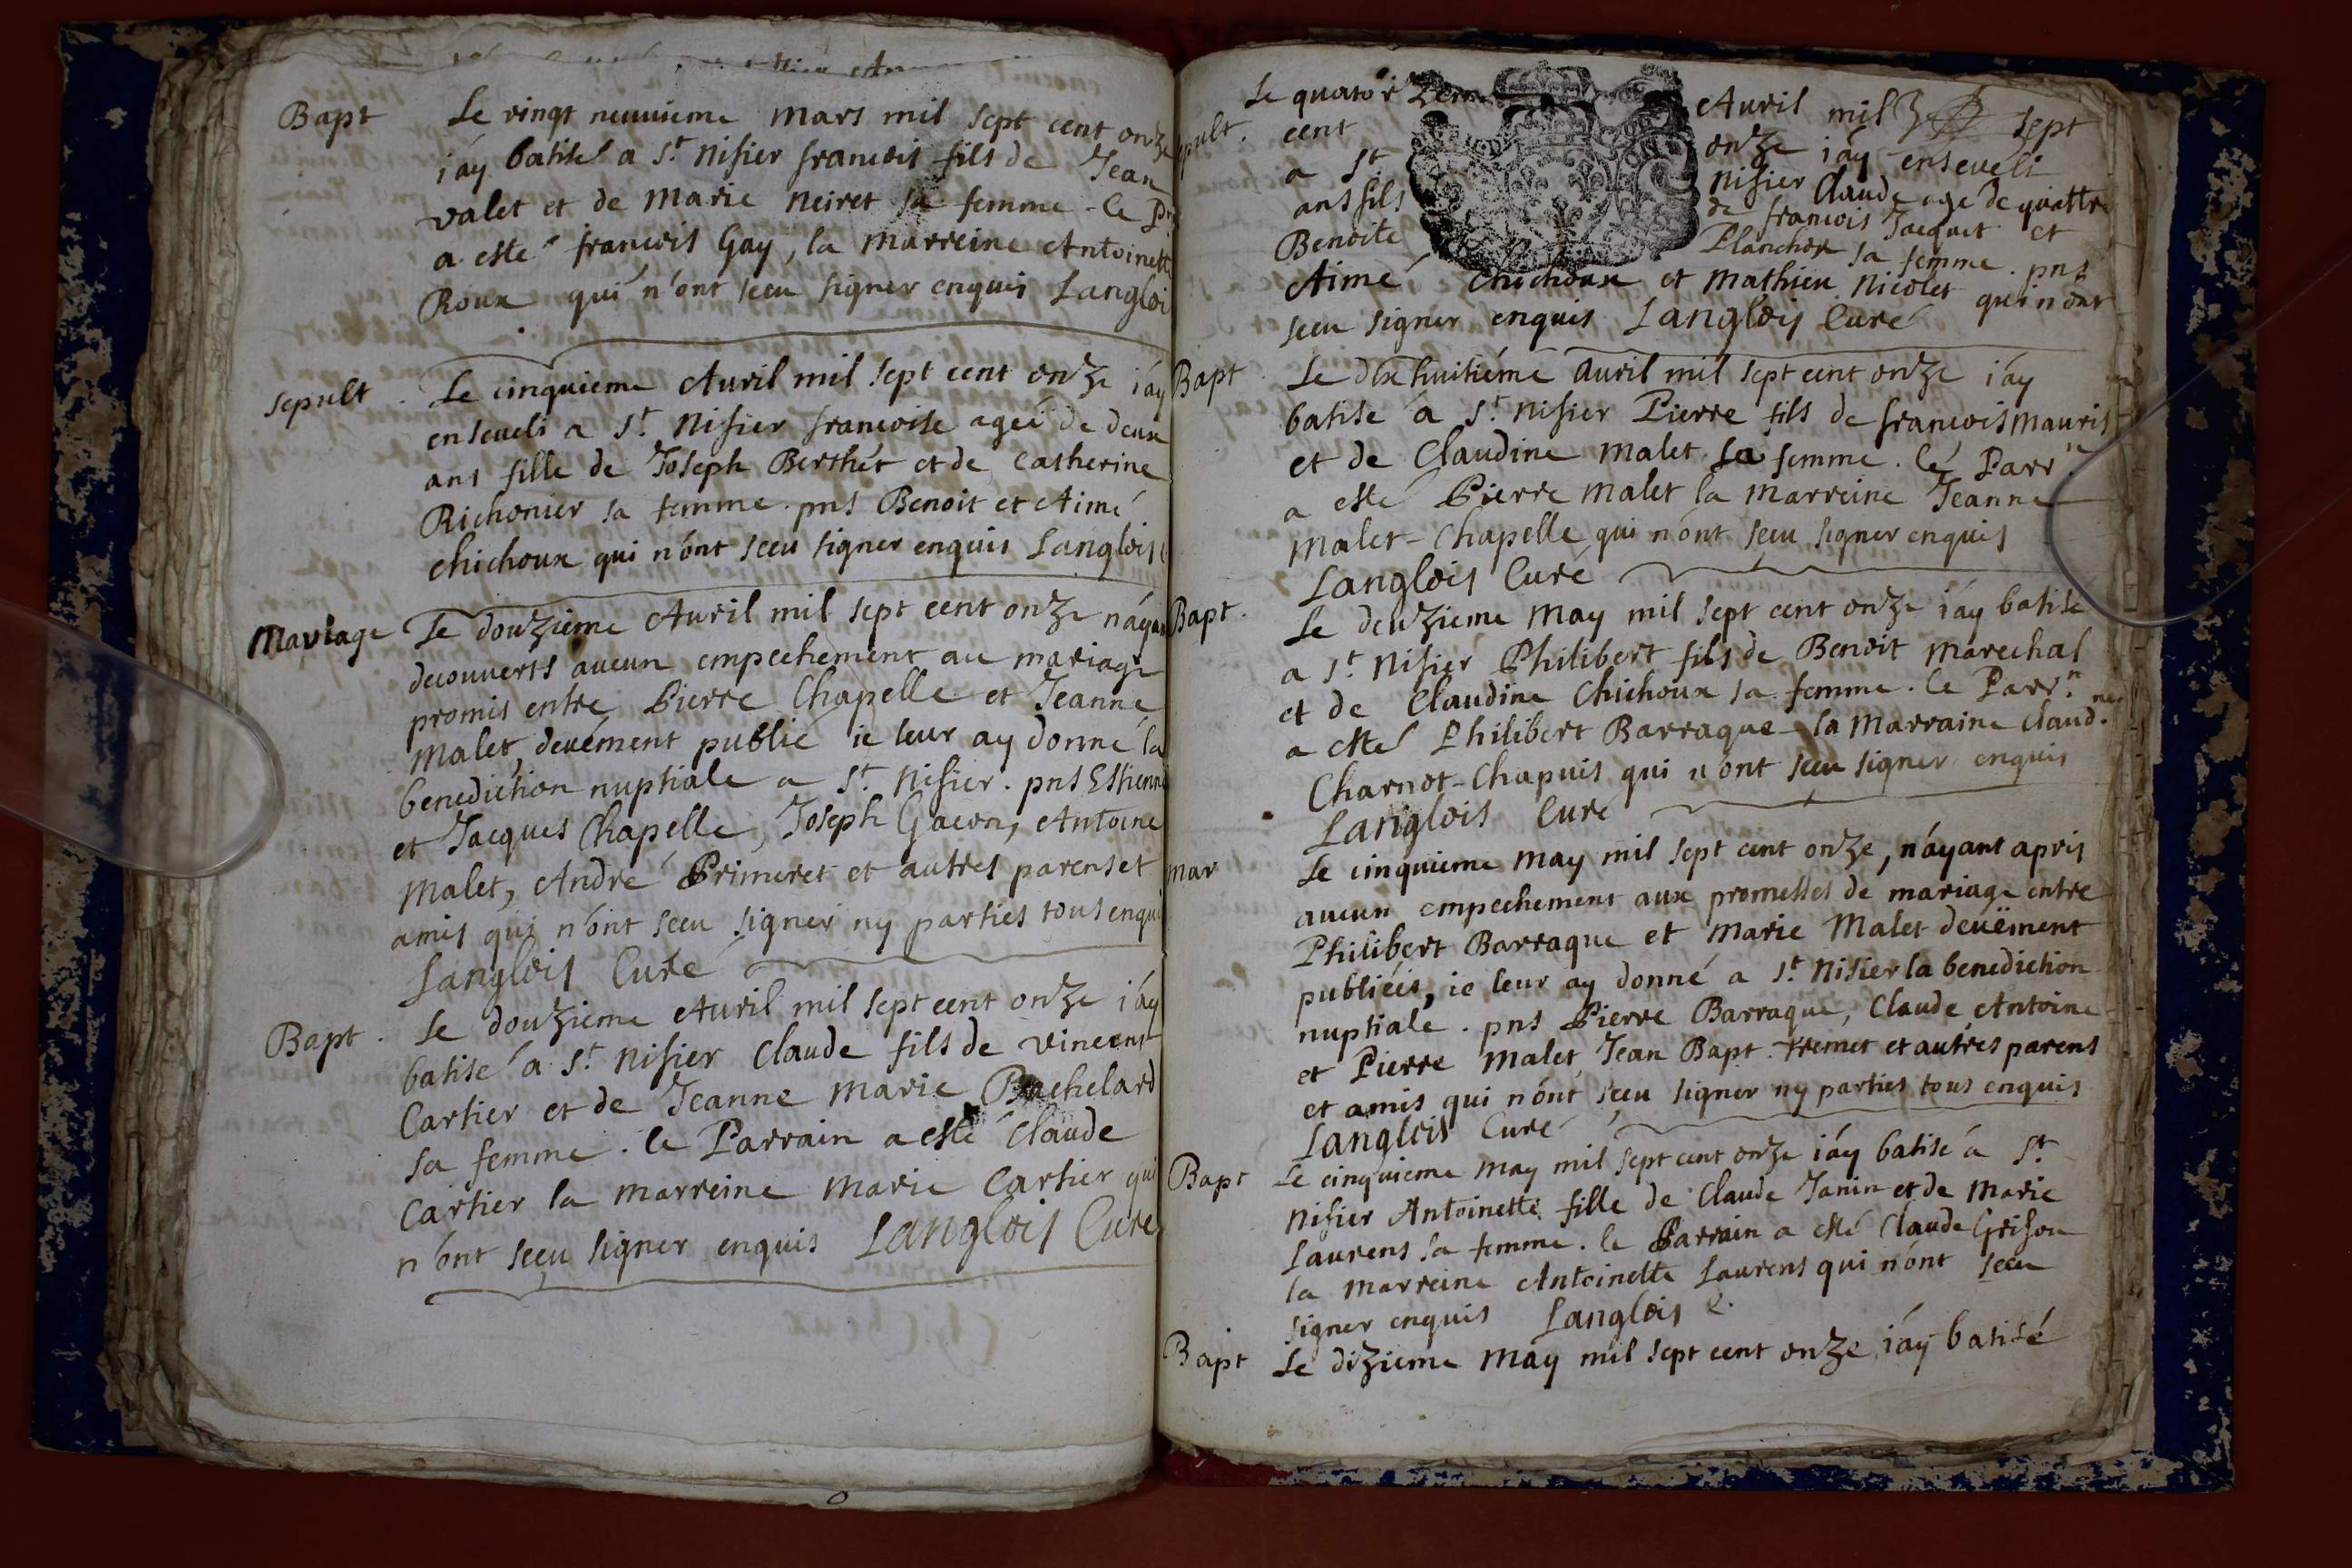 Bapt Le vingt neuuieme mars mil sept cent onze
i'ay batisé a St. Nisier francois fils de Jean
valet et de Marie Neiret sa femme - le
a esté francois Gay, la marreine Antoinett
Roux qui n'ont sceu signer enquis Langloi
sepult. Le cinquieme Auril mil sept cent onze i'ay
enseueli a St. Nisier francoise ageé de deux
ans fille de Joseph Berthet et de Catherine
Richonier sa femme. pns Benoit et Aimé
chichoux qui n'ont sceu signer enquis Langlois
Mariage Le douzieme Auril mil sept cent onze n'ayan
decouverts aucun empechement au mariage
promis entre Pierre Chapelle et Jeanne
Malet, deuëment publié ie leur ay donné la
benediction nuptiale a St. Nisier. pns Estienne
et Jacques Chapelle, Joseph Gacon, Antoine
Malet, André Primeret et autres parens et
amis qui n'ont sceu signer ny parties tous enqui
Langlois Curé
Bapt. Le douzieme Auril mil sept cent onze i'ay
batisé a St. Nisier Claude fils de vincent
Cartier et de Jeanne Marie Bachelard
sa femme. le Parrain a esté Claude
Cartier la marreine Marie Cartier qui
n'ont sceu signer enquis Langlois Curé
pult. Le quatorzieme Auril mil sept
cent onze i'ay enseueli
a St. Nisier Claude agé de quattre
ans fils de francois Jacquet et
Benoite Planchon sa femme. pns
Aimé Chichoux et Mathieu Nicolet qui n'ont
sceu signer enquis Langlois Curé
Bapt. Le dix huitiéme auril mil sept cent onze i'ay
batisé a St. Nisier Pierre fils de francois Mauris
et de Claudine Malet sa femme. le Parrn.
a esté Pierre Malet la marreine Jeanne
Malet-Chapelle qui n'ont sceu signer enquis
Langlois Curé
Bapt. Le deuzieme May mil sept cent onze i'ay batisé
a St. Nisier Philibert fils de Benoit Marechal
et de Claudine Chichoux sa femme. le Parrn.
a esté Philibert Barraque la Marraine Claud.ne
Charnot-Chapuis qui n'ont sceu signer enquis
Langlois Curé
mar Le cinquieme May mil sept cent onze, n'ayant apris
aucun empechement aux promesses de mariage entre
Philibert Barraque et Marie Malet deuëment
publiées, ie leur ay donné a St. Nisier la benediction
nuptiale. pns Pierre Barraque, Claude Antoine
et Pierre Malet, Jean Bapt. Tremet et autres parens
et amis qui n'ont sceu signer ny parties tous enquis
Langlois Curé
Bapt Le cinquieme May mil sept cent onze i'ay batisé a St.
Nisier Antoinette fille de Claude Janin et de Marie
Laurens sa femme. le Parrain a esté Claude Grison
la marreine Antoinette Laurens qui n'ont sceu
signer enquis Langlois C.
Bapt Le dizieme May mil sept cent onze i'ay batisé